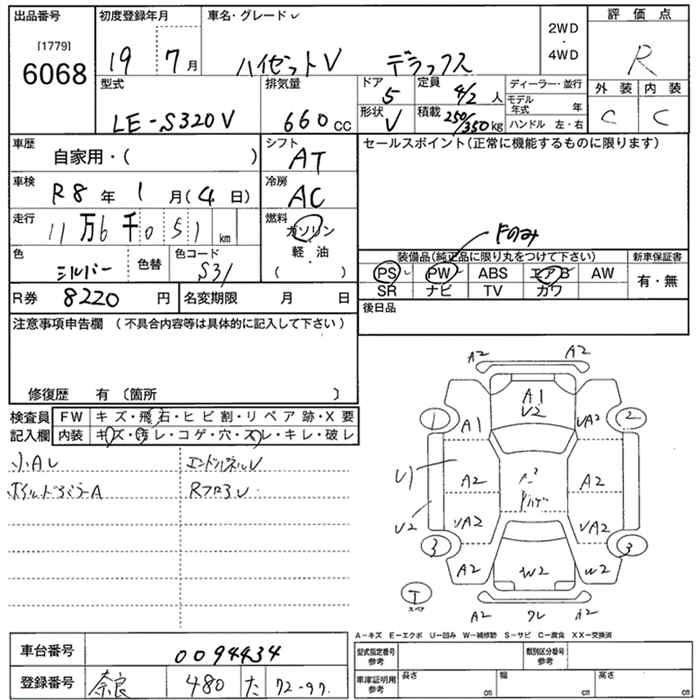 出品番号 初度登録年月 車名・グレード 2WD・4WD 評価点
[1779] 6068 19 7月 ハイゼットV デラックス R
型式 排気量 ドア 5 定員 4/2人 ディーラー・並行 外装 内装
LE-S320V 660cc 形状 V 積載 250/350kg モデル年式 年 C C
ハンドル 左・右
車歴 自家用・( ) シフト AT セールスポイント(正常に機能するものに限ります)
車検 R8年1月(4日) 冷房 AC
走行 11万6千051km 燃料 ガソリン 軽・油 ( )
Fのみ
色 シルバー 色替 色コード S31 装備品(純正品に限り丸をつけて下さい) 新車保証書
PS PW ABS エアB AW 有・無
SR ナビ TV カワ
R券 8220円 名変期限 月 日 後日品
注意事項申告欄 (不具合内容等は具体的に記入して下さい)
修復歴 有 (箇所 )
検査員記入欄 FW キズ・飛石・ヒビ割・リペア跡・X要
内装 キズ・汚レ・コゲ・穴・スレ・キレ・破レ
小AU エンドパネルU
RフロアU
A2 A2
A1 U2
1 2
A1 UA2
U1 A2 A2
U2 UA2 UA2
3 3
A2 W2 W2
I スペア
A2 ワレ A2
A-キズ E-エクボ U-凹み W-補修跡 S-サビ C-腐食 XX-交換済
車台番号 0094434 型式指定番号 参考 類別区分番号 参考
登録番号 奈良 480 た 72-97 車庫証明用 参考 長さ cm 幅 cm 高さ cm